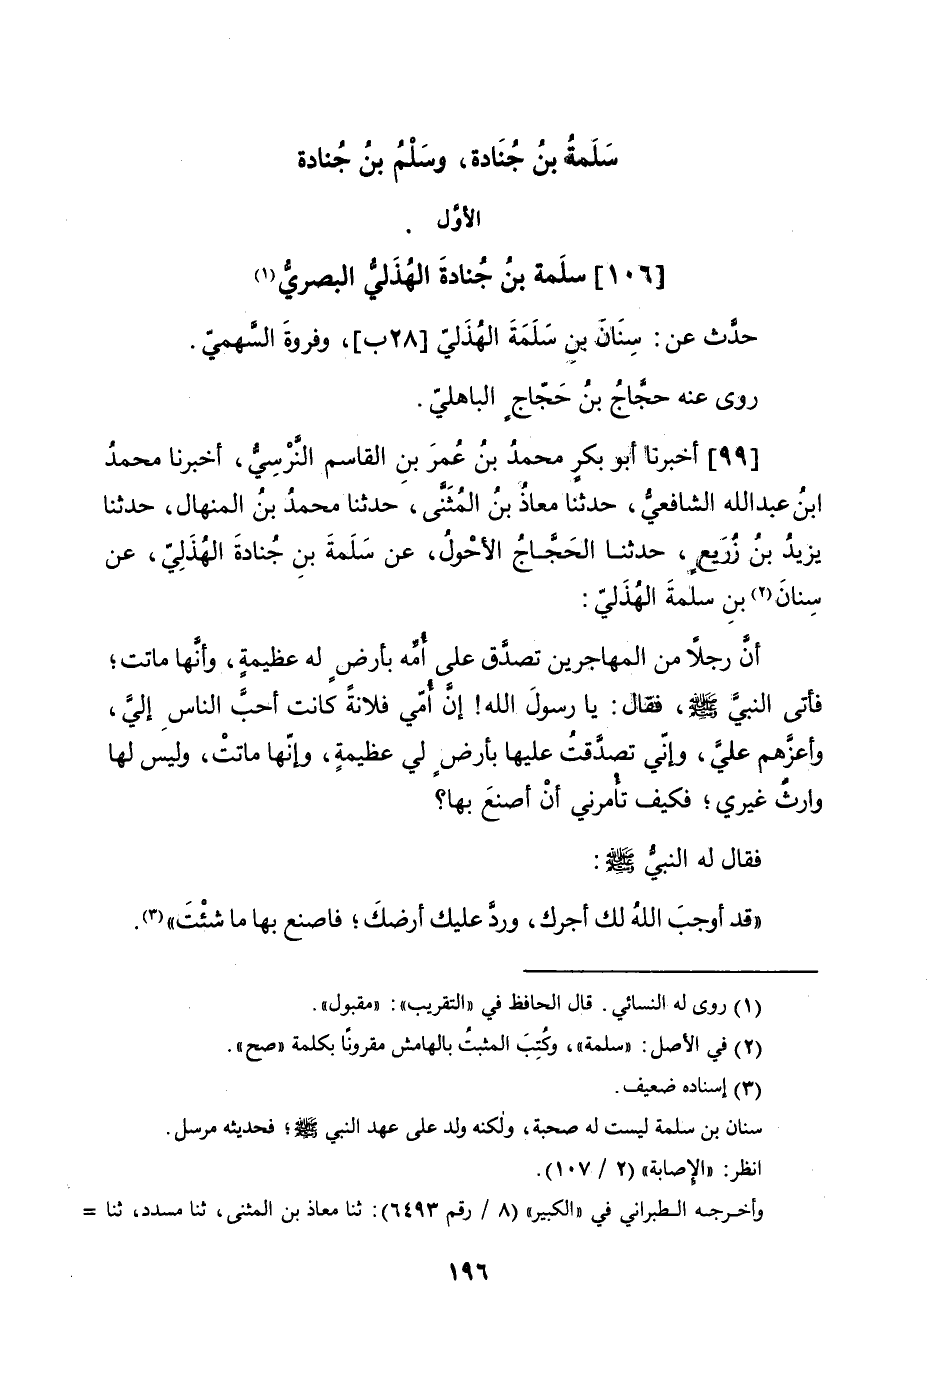 سَلَمةُ بنُ جُنَادة، وسَلْمُ بنُ جُنادة
الأوَّل
[١٠٦] سلَمة بنُ جُنادةَ الهُذَليُّ البصريُّ(١)
حدَّث عن: سِنَانَ بنِ سَلَمَةَ الهُذَليّ [٢٨ب]، وفروةَ السَّهميّ.
روى عنه حجَّاجُ بنُ حَجّاجٍ الباهليّ.
[٩٩] أخبرنا أبو بكرٍ محمدُ بنُ عُمرَ بنِ القاسم النَّرْسِيُّ، أخبرنا محمدُ
ابنُ عبدالله الشافعيُّ، حدثنا معاذُ بنُ المُثَنَّى، حدثنا محمدُ بنُ المنهال، حدثنا
يزيدُ بنُ زُرَيعٍ، حدثنا الحَجَّاجُ الأحْولُ، عن سَلَمةَ بنِ جُنادةَ الهُذَلِيّ، عن
سِنانَ(٢) بنِ سلمةَ الهُذَليّ:
أنَّ رجلاً من المهاجرين تصدَّق على أُمِّه بأرضٍ له عظيمةٍ، وأنَّها ماتت؛
فأتى النبيَّ ﷺ، فقال: يا رسولَ الله! إنَّ أُمّي فلانةً كانت أحبَّ الناسِ إليَّ،
وأعزَّهم عليَّ، وإنّي تصدَّقتُ عليها بأرضٍ لي عظيمةٍ، وإنّها ماتتْ، وليس لها
وارثُ غيري؛ فكيف تأمرني أنْ أصنعَ بها؟
فقال له النبيُّ ﷺ:
«قد أوجبَ اللهُ لك أجرك، وردَّ عليك أرضكَ؛ فاصنع بها ما شئْتَ»(٣).
(١) روى له النسائي. قال الحافظ في «التقريب»: «مقبول».
(٢) في الأصل: «سلمة»، وكُتِبَ المثبتُ بالهامش مقرونًا بكلمة «صح».
(٣) إسناده ضعيف.
سنان بن سلمة ليست له صحبة، ولكنه ولد على عهد النبي ﷺ؛ فحديثه مرسل.
انظر: «الإصابة» (٢ / ١٠٧).
وأخرجه الطبراني في «الكبير» (٨ / رقم ٦٤٩٣): ثنا معاذ بن المثنى، ثنا مسدد، ثنا =
١٩٦